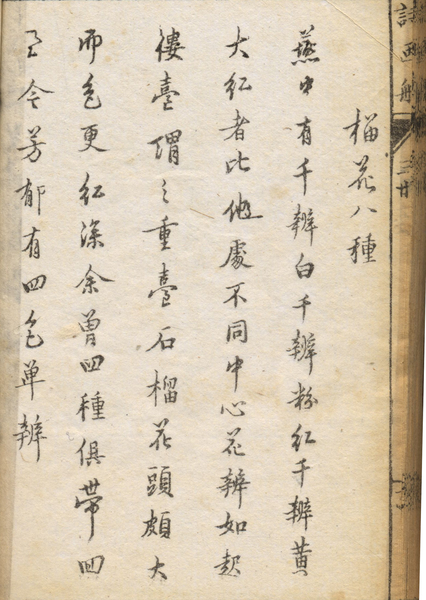 詩画舫
榴花八種
燕中有千辨白千辨粉紅千辨黃
大紅者比他處不同中心花辨如起
褸臺謂之重臺石榴花頭頗大
而色更紅深余曾四種俱帶回
至今芳郁有四色单辨